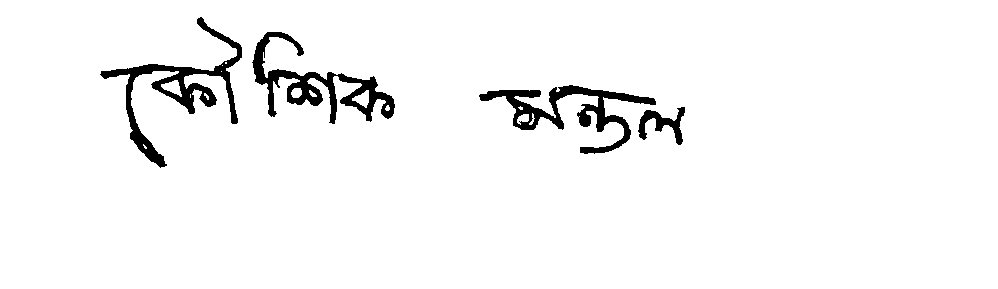 কৌশিক মন্ডল